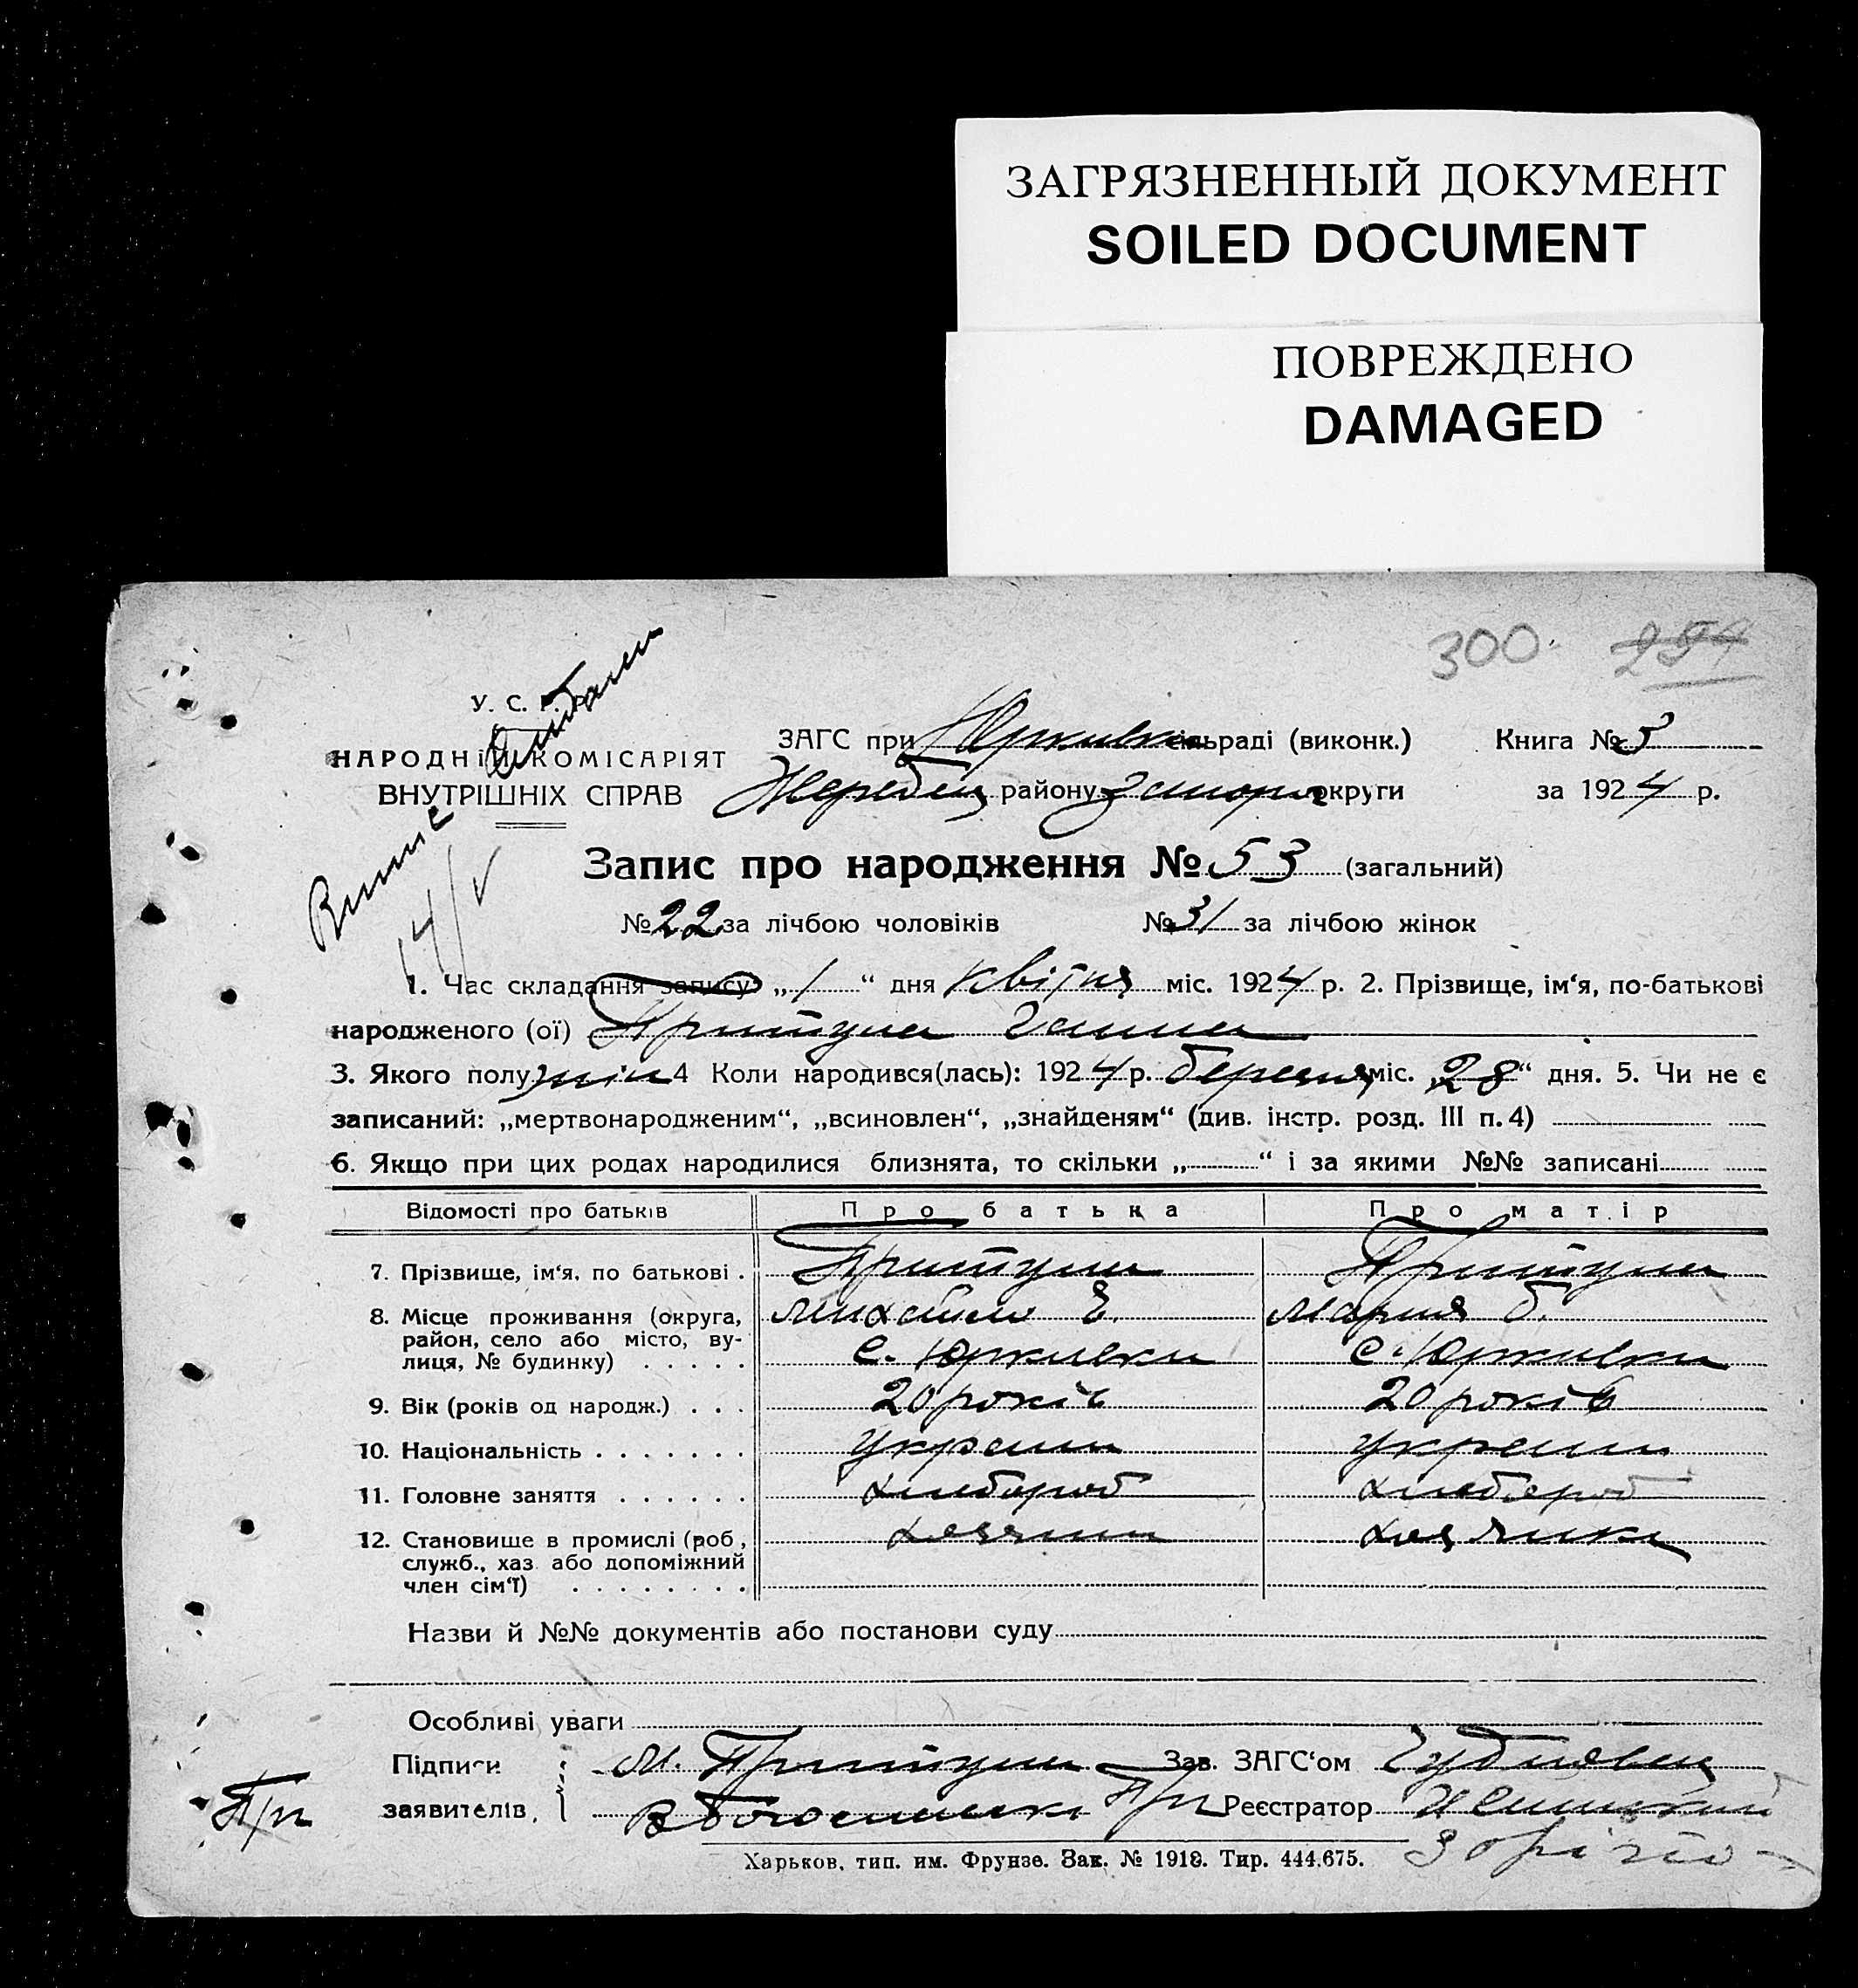 ЗАГРЯЗНЕННЫЙ ДОКУМЕНТ
SOILED DOCUMENT
ПОВРЕЖДЕНО
DAMAGED
300. 294
У. С. Р. Р.
НАРОДНІЙ КОМІСАРІЯТ
ВНУТРІШНІХ СПРАВ
ЗАГС при Юркивск сільраді (виконк.) Книга № 3
Жеребец району Запор округи за 1924 р.
Запис про народження № 53 (загальний)
№ 22 за лічбою чоловіків № 31 за лічбою жінок
14/V
1. Час складання запису: „1“ дня квітня міс. 1924 р. 2. Прізвище, ім‘я, по-батькові
народженого (ої) Притула Ганна
3. Якого полу жін 4 Коли народився(лась): 1924 р. березня міс. „28“ дня. 5. Чи не є
записаний: „мертвонародженим“, „всиновлен“, „знайденям“ (див. інстр. розд. III п. 4)
6. Якщо при цих родах народилися близнята, то скільки „ “ і за якими №№ записані
Відомості про батьків Про батька Про матір
7. Прізвище, ім‘я, по батькові . Притула Притула
8. Місце проживання (округа, Михайло Я. Мария Б.
район, село або місто, ву-
лиця, № будинку) с. Юркивки с. Юркивки
9. Вік (років од народж.) . . . 20 років 20 років
10. Національність . . . . . . . україн україн
11. Головне заняття . . . . . . хлебороб хлебороб
12. Становище в промислі (роб., хазяин хазяйка
служб., хаз або допоміжний
член сім‘ї) . . . . . . . .
Назви й №№ документів або постанови суду
Особливі уваги
Підписи М. Притула Зав. ЗАГС‘ом
заявителів. Реєстратор
Харьков, тип. им. Фрунзе. Зак. № 1918. Тир. 444.675.